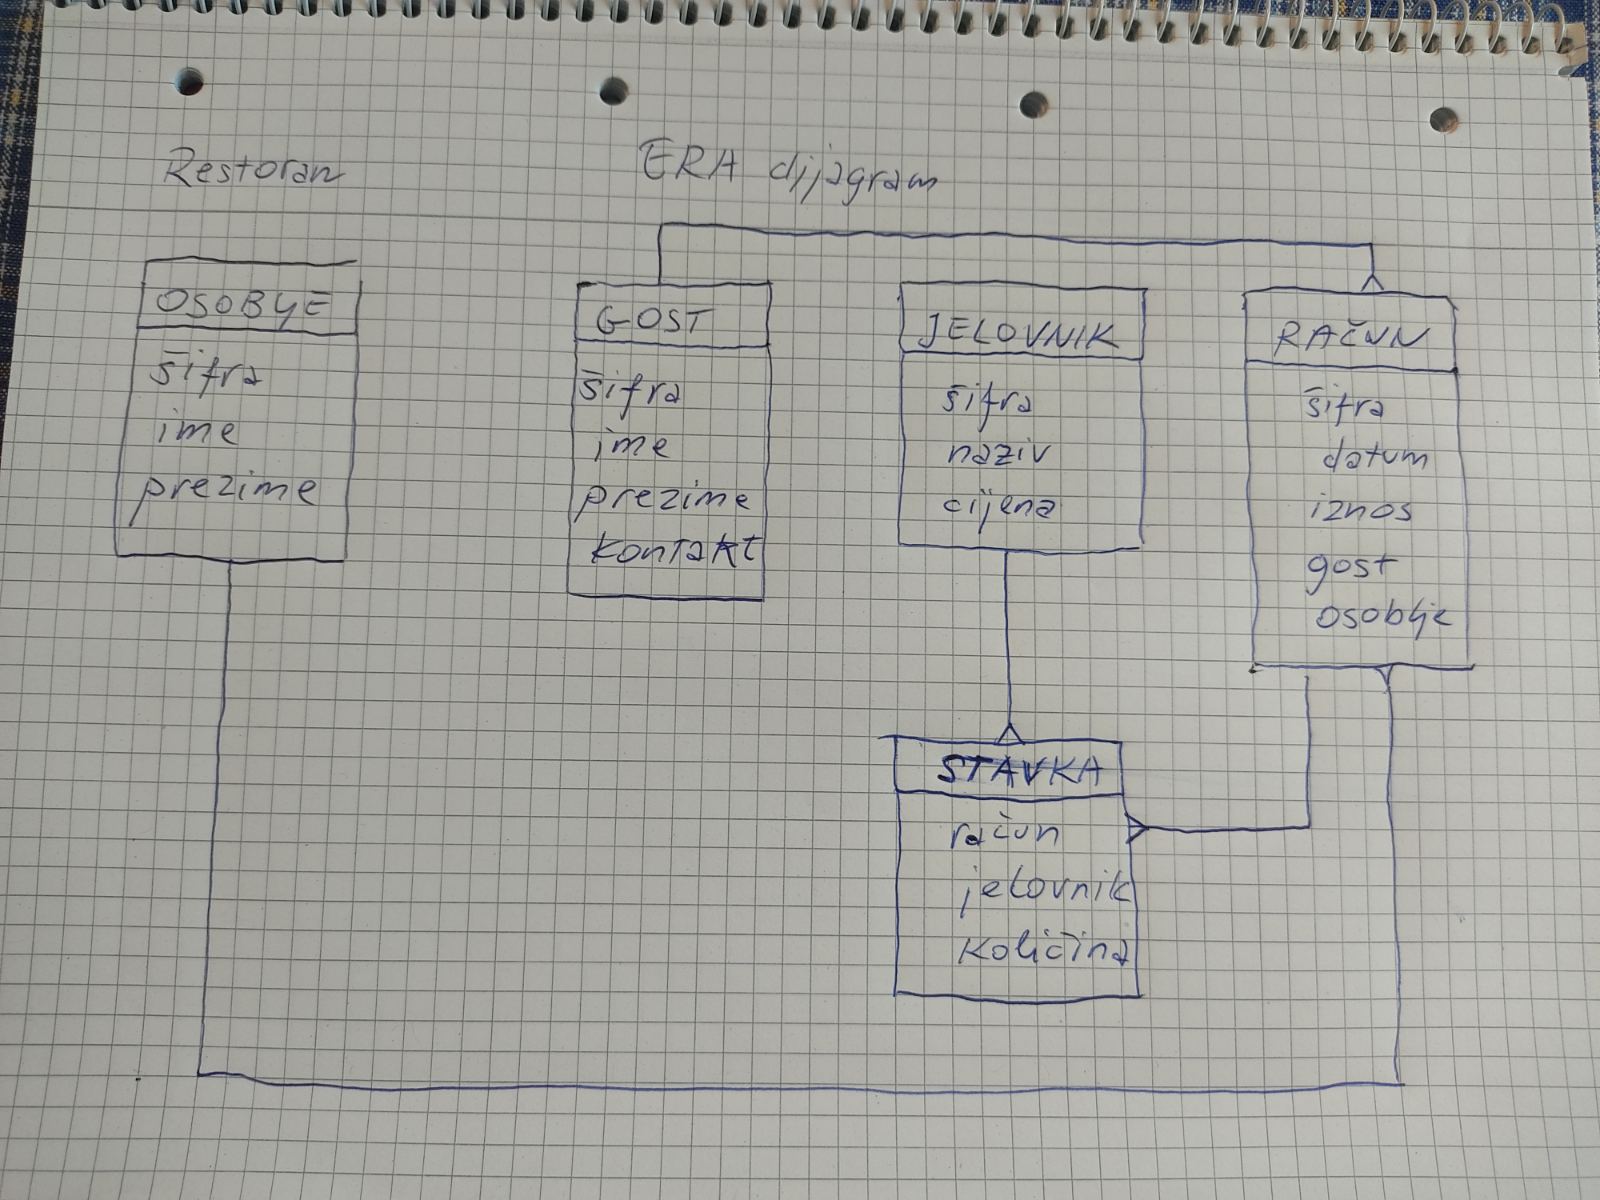 Restoran
ERA dijagram
OSOBLJE
šifra
ime
prezime
GOST
šifra
ime
prezime
kontakt
JELOVNIK
šifra
naziv
cijena
RAČUN
šifra
datum
iznos
gost
osoblje
STAVKA
račun
jelovnik
količina